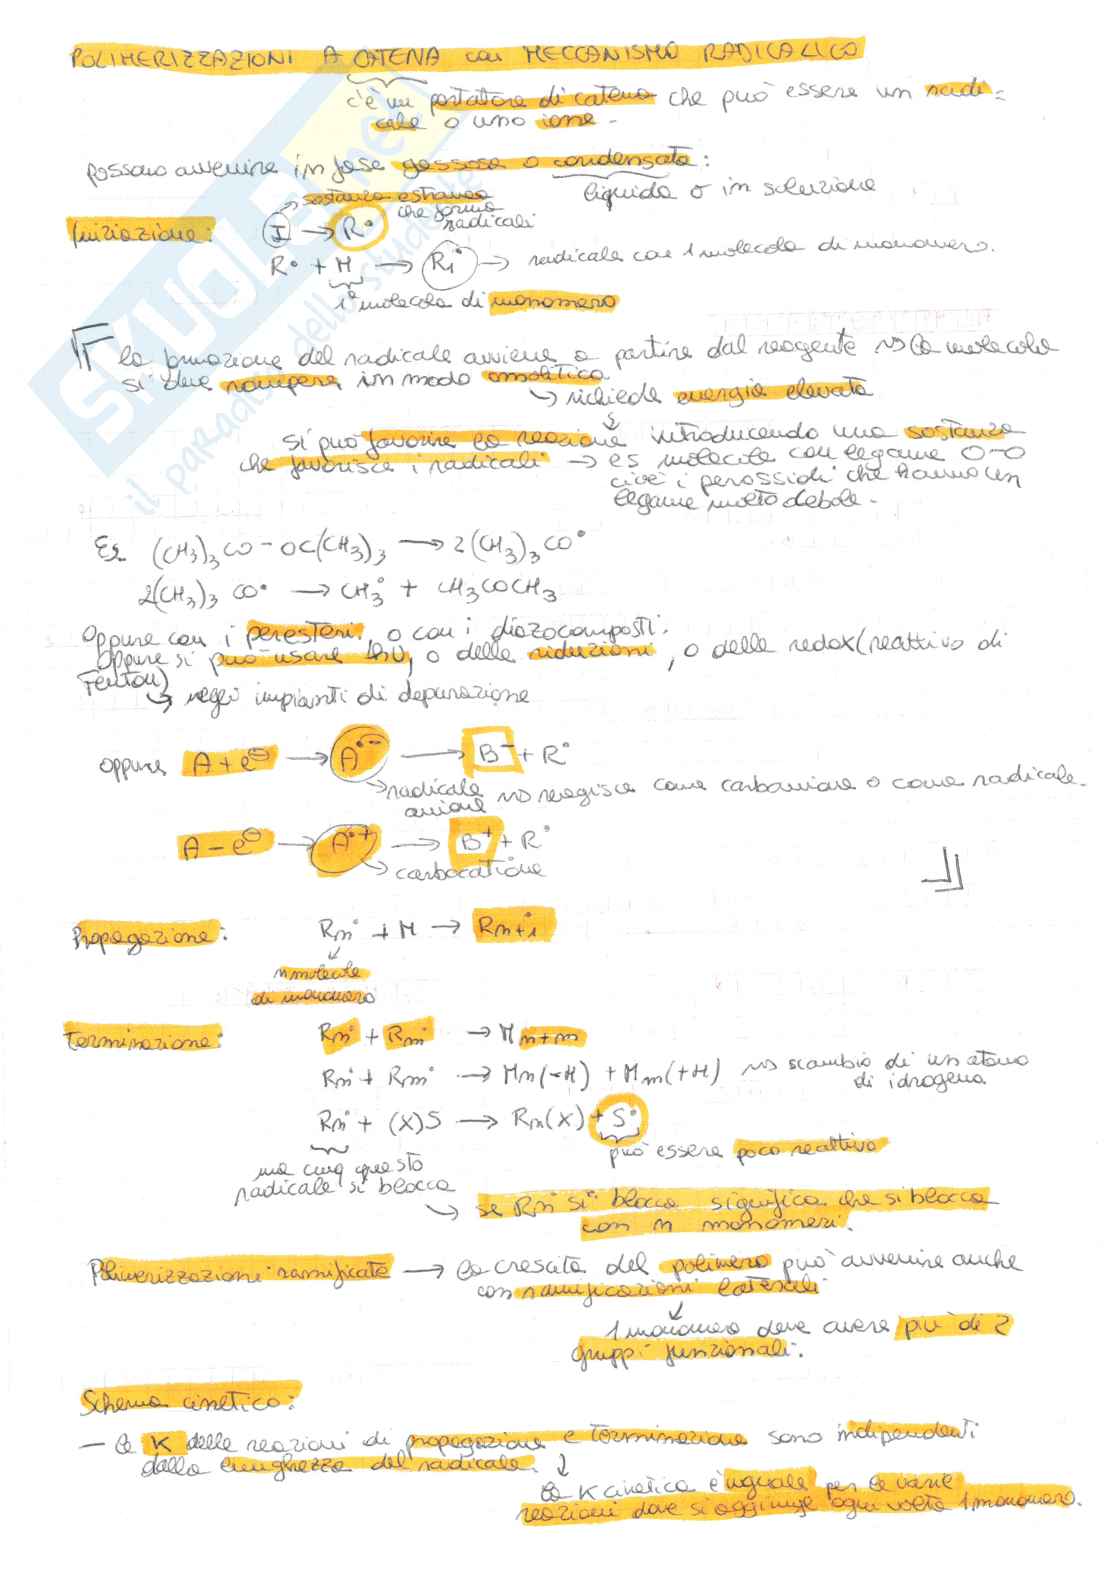 POLIMERIZZAZIONI A CATENA con MECCANISMO RADICALICO
c'è un portatore di catena che può essere un radi=
cale o uno ione.
Possono avvenire in fase gassosa o condensata:
liquida o in soluzione
sostanza estranea
che forma
radicali
Iniziazione: I → R•
R• + M → R1• → radicale con 1 molecola di monomero.
1a molecola di monomero
la formazione del radicale avviene a partire dal reagente ⇝ la molecola
si deve rompere in modo omolitico
↳ richiede energia elevata
si può favorire la reazione introducendo una sostanza
che favorisce i radicali → es molecole con legame O-O
cioè i perossidi che hanno un
legame molto debole.
Es. (CH3)3CO - OC(CH3)3 → 2(CH3)3CO•
2(CH3)3 CO• → CH3• + CH3COCH3
Oppure con i peresteri, o con i diazocomposti.
Oppure si può usare hν, o delle riduzioni, o delle redox (reattivo di
Fenton)
↳ negli impianti di depurazione
oppure A + e⊖ → A•- → B- + R•
→ radicale
anione ⇝ reagisce come carbanione o come radicale.
A - e⊖ → A•+ → B+ + R•
→ carbocatione
Propagazione: Rn• + M → Rn+1
n molecole
di monomero
Terminazione: Rn• + Rm• → Mn+m
Rn• + Rm• → Mn(-H) + Mm(+H) ⇝ scambio di un atomo
di idrogeno
Rn• + (X)S → Rn(X) + S•
può essere poco reattivo
ma cmq questo
radicale si blocca
↳ se Rn• si blocca significa che si blocca
con n monomeri.
Polimerizzazioni ramificate → la crescita del polimero può avvenire anche
con ramificazioni laterali
1 monomero deve avere più di 2
gruppi funzionali.
Schema cinetico:
- le K delle reazioni di propagazione e terminazione sono indipendenti
dalla lunghezza del radicale.
la K cinetica è uguale per le varie
reazioni dove si aggiunge ogni volta 1 monomero.
SKUOLA.net
il paradiso dello studente